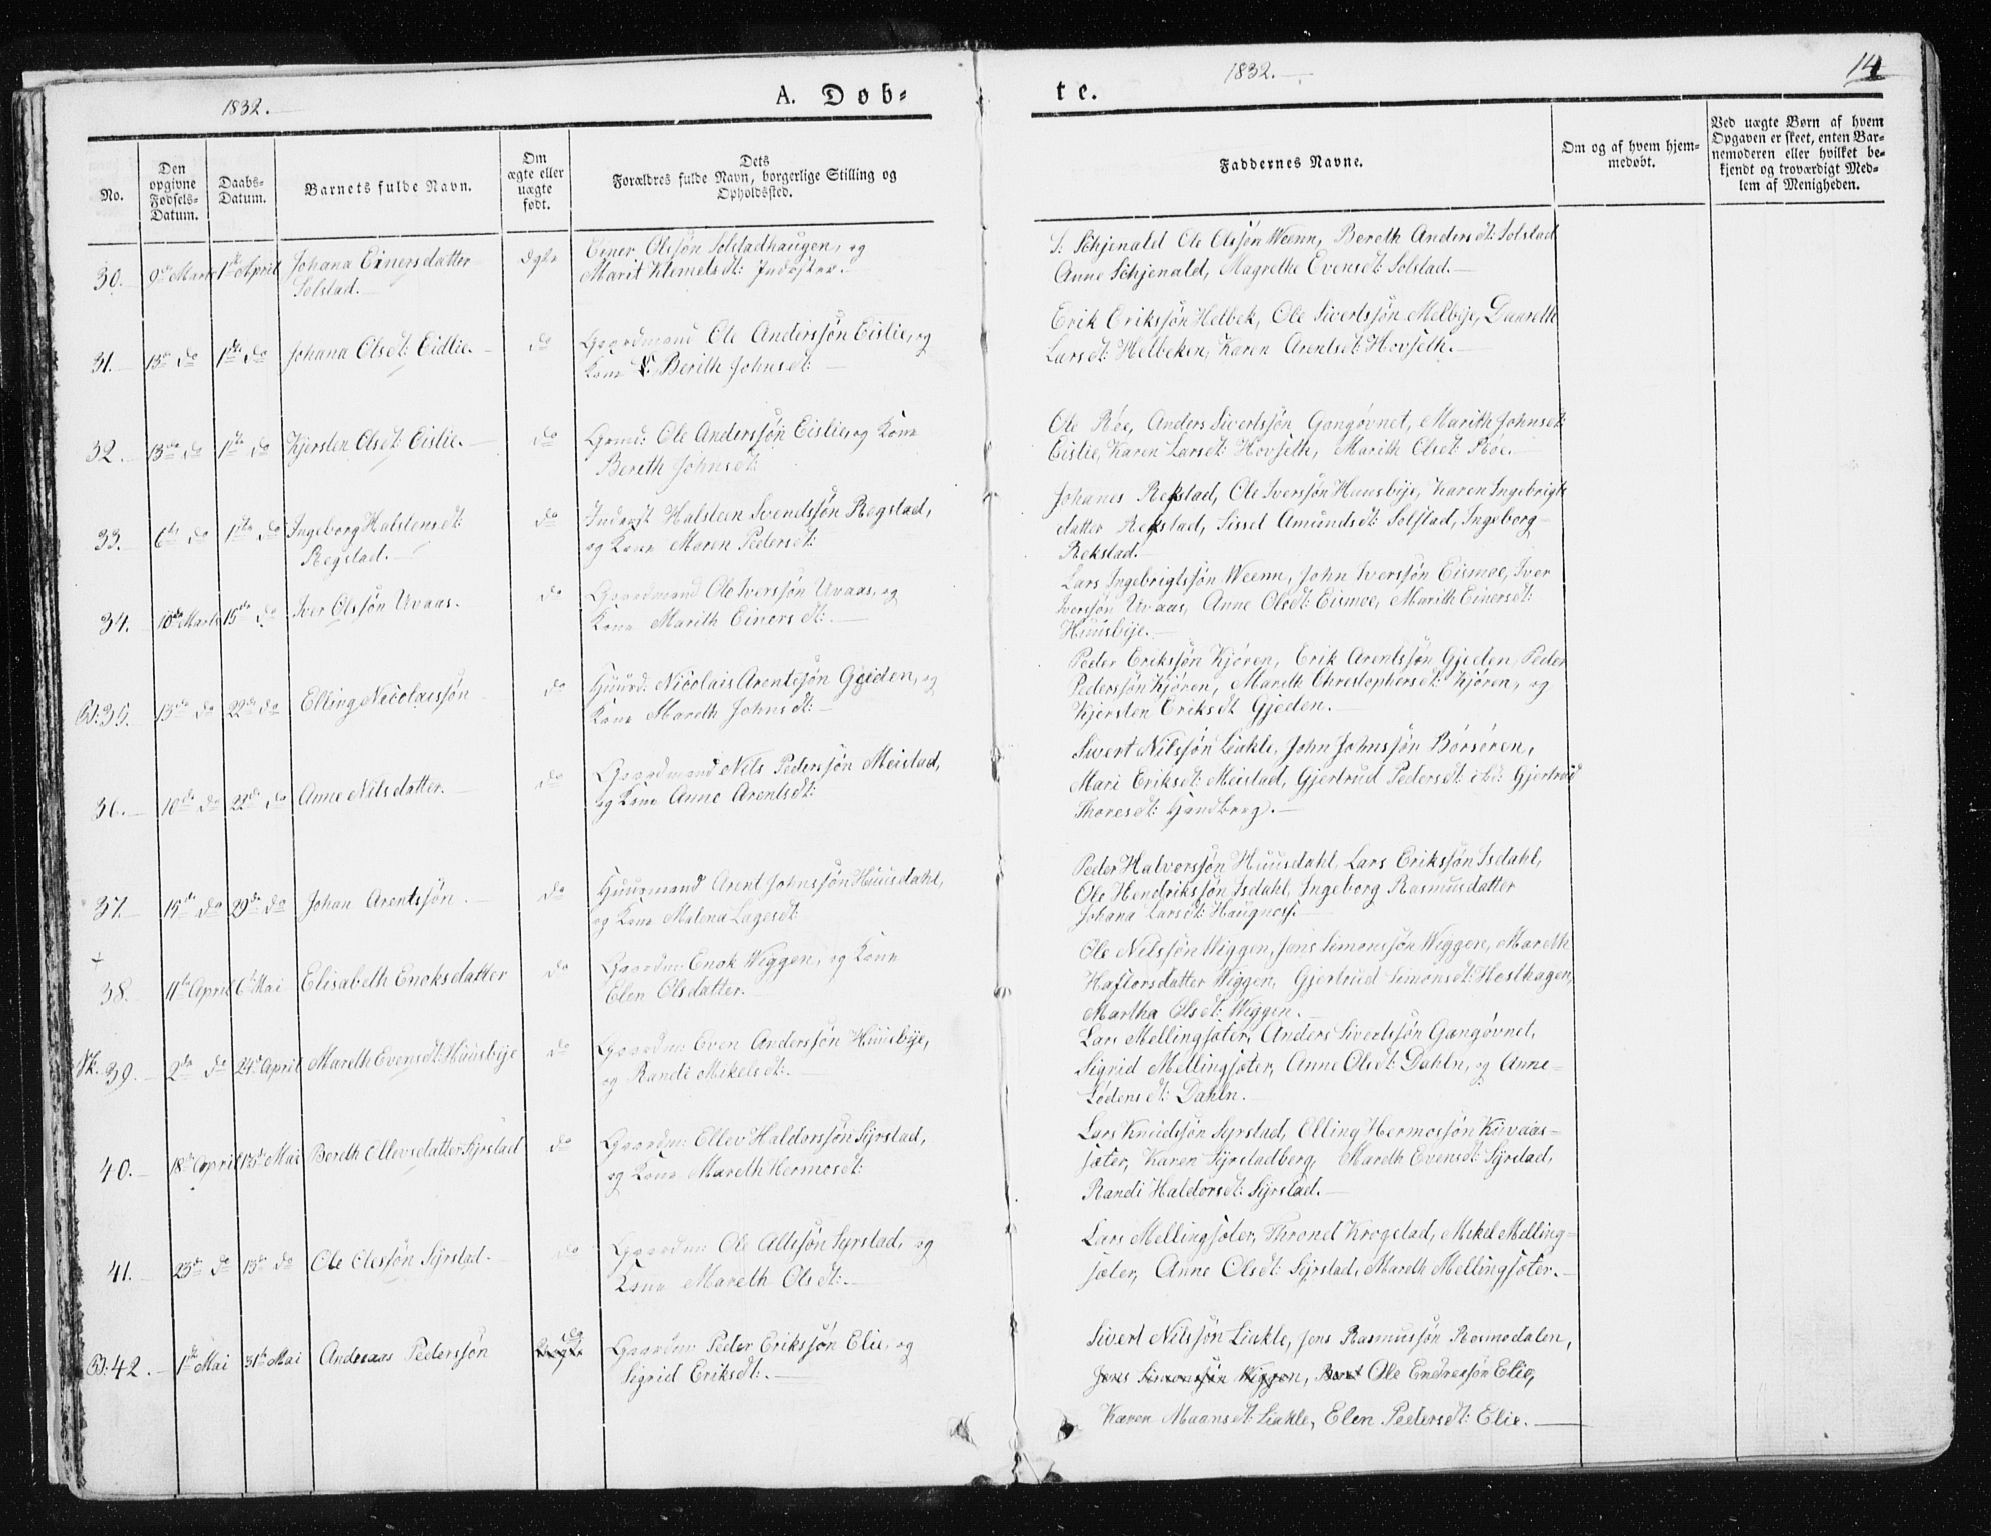 1832.
A. Døb-
te.
1832.
14
No.
Den opgivne Fødsels-Datum.
Daabs-Datum.
Barnets fulde Navn.
Om ægte eller uægte født.
Dets
Forældres fulde Navn, borgerlige Stilling og
Opholdssted.
Faddernes Navne.
Om og af hvem hjem-
medøbt.
Ved uægte Børn af hvem
Opgaven er skeet, enten Bar-
nemoderen eller hvilket be-
kjendt og troværdigt Med-
lem af Menigheden.
30. 9de Marts 1ste April Johana Einersdatter
Solstad.
Einer Olssøn Solstadhaugen, og
Marit Klemetsdt: Inderster.
S: Schjenald Ole Olssøn Weenn, Bereth Andersdt: Solstad
Anne Schjenald, Magrethe Evensdt: Solstad.
31. 13de do 1ste do Johana Olsdt: Eidlie.
do
Gaardmand Ole Anderssøn Eislie, og
Kone Berith Johnsdt:
Erik Erikssøn Helbek, Ole Sivertssøn Melbye, Daareth
Larsdt: Helbeken, Karen Arentsdt: Hovseth.
32. 13de do 1ste do Kjersten Olsdt: Eislie.
do
Grmd: Ole Anderssøn Eislie, og Kone
Bereth Johnsdt:
Ole Røe, Anders Sivertssøn Gangøvnet, Marith Johnsdt:
Eislie, Karen Larsdt: Hovseth, Marith Olsdt: Røe.
33. 6te do 1ste do Ingeborg Halstensdt:
Regstad.
do
Inderst Halsteen Svendssøn Regstad,
og Kone Maren Pedersdt:
Johanes Rekstad, Ole Iverssøn Huusbye, Karen Ingebrigt
datter Rekstad, Sissel Amundsdt: Solstad, Ingeborg
Rekstad.
34. 10de Marts 15de do Iver Olssøn Uvaas.
do
Gaardmand Ole Iverssøn Uvaas, og
Kone Marith Einersdt:
Lars Ingebrigtssøn Weenn, John Iverssøn Eismoe, Iver
Iverssøn Uvaas, Anne Olsdt: Eismoe, Marith Einersdt:
Huusbye.
35. 13de do 22de do Elling Nicolaissøn
do
Huusd: Nicolais Arentssøn Gjeiden, og
Kone Mareth Johnsdt:
Peder Erikssøn Kjøren, Erik Arentssøn Gjeden, Peder
Pederssøn Kjøren, Mareth Christophersdt: Kjøren, og
Kjersten Eriksdt Gjeden.
36. 10de do 22de do Anne Nilsdatter.
do
Gaardmand Nils Pederssøn Meistad,
og Kone Anne Arentsdt:
Sivert Nilssøn Liakle, John Johnssøn Børsøren,
Mari Eriksdt: Meistad, Gjertrud Pedersdt: ibd: Gjertrud
Thoresdt: Handberg.
37. 15de do 29de do Johan Arentssøn.
do
Huusmand Arent Johnssøn Huusdahl,
og Kone Malena Lagesdt:
Peder Halvorssøn Huusdahl, Lars Erikssøn Isdahl,
Ole Hendrikssøn Isdahl, Ingeborg Rasmusdatter
Johana Larsdt: Haugness.
38. 11te April 6te Mai Elisabeth Enoksdatter
do
Gaardm: Enok Wiggen, og Kone
Elen Olsdatter.
Ole Nilssøn Wiggen, Jens Simonssøn Wiggen, Mareth
Haflorsdatter Wiggen, Gjertrud Simonsdt: Hosthagen,
Martha Olsdt: Wiggen.
39. 2de do 24de April Mareth Evensdt: Huusbye
do
Gaardm: Even Anderssøn Huusbye,
og Randi Mikelsdt:
Lars Mellingsæter, Anders Sivertssøn Gangøvnet,
Sigrid Mellingsæter, Anne Olsdt: Dahln, og Anne
Lødensdt: Dahln.
40. 18de April 13de Mai Bereth Ellevsdatter Syrstad
do
Gaardm: Ellev Haldorssøn Syrstad,
og Kone Mareth Hermosdt:
Lars Knudssøn Syrstad, Elling Hermossøn Kuvaas-
sæter, Karen Syrstadberg, Mareth Evensdt: Syrstad,
Randi Haldorsdt: Syrstad.
41. 23de do 13de do Ole Olessøn Syrstad.
do
Gaardm: Ole Altssøn Syrstad, og
Kone Mareth Olsdt:
Lars Mellingsæter, Thrond Krogstad, Mikel Melling-
sæter, Anne Olsdt: Syrstad, Mareth Mellingsæter.
42. 1ste Mai 31te Mai Andreas Pederssøn
do
Gaardm: Peder Erikssøn Elie, og
Sigrid Eriksdt:
Sivert Nilssøn Liakle, Jens Rasmussøn Rosmodalen,
Jens Simonssøn Wiggen, Ole Endressøn Elie,
Karen Maansdt: Liakle, Elen Pedersdt: Elie.